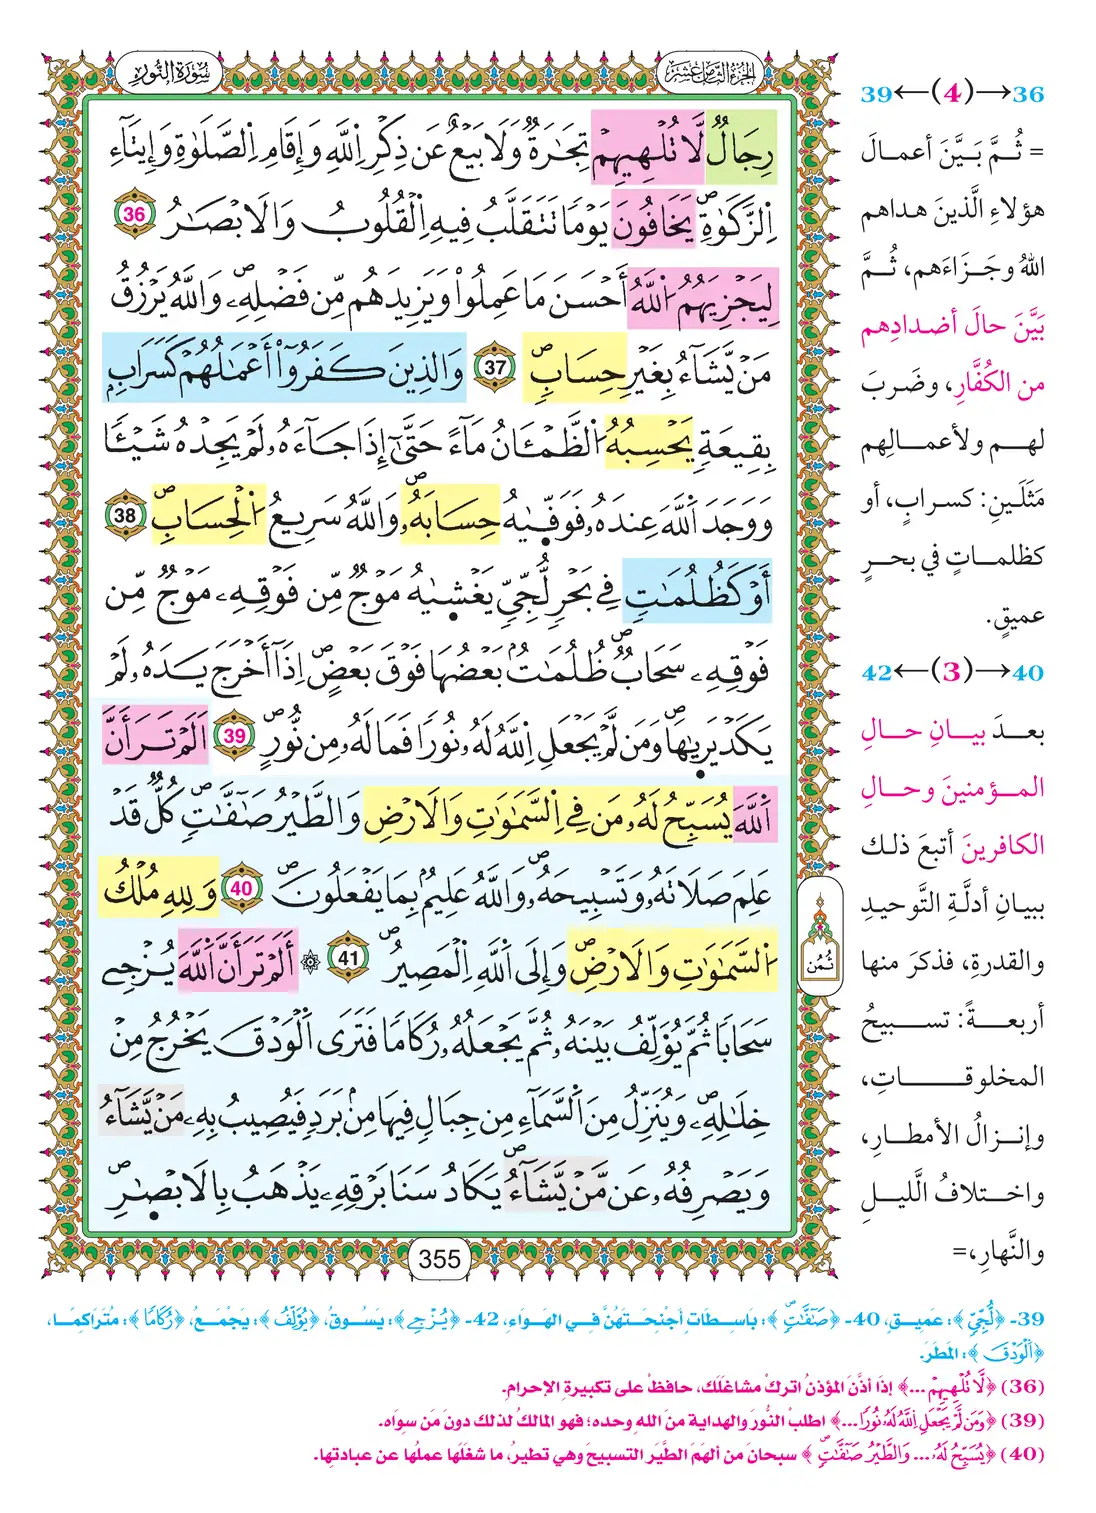 سُورَةُ النُّورِ
الجُزءُ الثَّامِنَ عَشَرَ
رِجَالٌ لَّا تُلْهِيهِمْ تِجَٰرَةٌ وَلَا بَيْعٌ عَن ذِكْرِ اِ۬للَّهِ وَإِقَامِ اِ۬لصَّلَوٰةِ وَإِيتَآءِ
اِ۬لزَّكَوٰةِۖ يَخَافُونَ يَوْمٗا تَتَقَلَّبُ فِيهِ اِ۬لْقُلُوبُ وَالَابْصَٰرُ 36
لِيَجْزِيَهُمُ اُ۬للَّهُ أَحْسَنَ مَا عَمِلُواْ وَيَزِيدَهُم مِّن فَضْلِهِۦۖ وَاللَّهُ يَرْزُقُ
مَنْ يَّشَآءُ بِغَيْرِ حِسَابٖۖ 37 وَالذِينَ كَفَرُوٓاْ أَعْمَٰلُهُمْ كَسَرَابِۢ
بِقِيعَةٖ يَحْسِبُهُ اُ۬لظَّمْـَٔانُ مَآءً حَتَّيٰٓ إِذَا جَآءَهُۥ لَمْ يَجِدْهُ شَيْـٔٗا
وَوَجَدَ اَ۬للَّهَ عِندَهُۥ فَوَفّ۪يٰهُ حِسَابَهُۥۖ وَاللَّهُ سَرِيعُ اُ۬لْحِسَابِۖ 38
أَوْ كَظُلُمَٰتٖ فِي بَحْرٖ لُّجِّيّٖ يَغْش۪يٰهُ مَوْجٌ مِّن فَوْقِهِۦ مَوْجٌ مِّن
فَوْقِهِۦ سَحَابٌۖ ظُلُمَٰتُۢ بَعْضُهَا فَوْقَ بَعْضٍۖ اِذَآ أَخْرَجَ يَدَهُۥ لَمْ
يَكَدْ يَر۪يٰهَاۖ وَمَن لَّمْ يَجْعَلِ اِ۬للَّهُ لَهُۥ نُورٗا فَمَا لَهُۥ مِن نُّورٍۖ 39 اَلَمْ تَرَ أَنَّ
اَ۬للَّهَ يُسَبِّحُ لَهُۥ مَن فِي اِ۬لسَّمَٰوَٰتِ وَالَارْضِ وَالطَّيْرُ صَٰٓفَّٰتٖۖ كُلّٞ قَدْ
عَلِمَ صَلَاتَهُۥ وَتَسْبِيحَهُۥۖ وَاللَّهُ عَلِيمُۢ بِمَا يَفْعَلُونَۖ 40 وَلِلهِ مُلْكُ
اُ۬لسَّمَٰوَٰتِ وَالَارْضِۖ وَإِلَى اَ۬للَّهِ اِ۬لْمَصِيرُۖ 41 ۞ أَلَمْ تَرَ أَنَّ اَ۬للَّهَ يُزْجِے
سَحَابٗا ثُمَّ يُؤَلِّفُ بَيْنَهُۥ ثُمَّ يَجْعَلُهُۥ رُكَامٗا فَتَرَى اَ۬لْوَدْقَ يَخْرُجُ مِنْ
خِلَٰلِهِۦۖ وَيُنَزِّلُ مِنَ اَ۬لسَّمَآءِ مِن جِبَالٖ فِيهَا مِنۢ بَرَدٖ فَيُصِيبُ بِهِۦ مَنْ يَّشَآءُ
وَيَصْرِفُهُۥ عَن مَّنْ يَّشَآءُۖ يَكَادُ سَنَا بَرْقِهِۦ يَذْهَبُ بِالَابْصٰ۪رِۖ
ثُمُن
355
36→(4)←39
= ثُمَّ بَيَّنَ أعمالَ
هؤلاءِ الَّذينَ هداهم
اللهُ وجَزَاءَهم، ثُمَّ
بَيَّنَ حالَ أضدادِهم
من الكُفَّارِ، وضَربَ
لهم ولأعمالِهم
مَثَلَينِ: كسرابٍ، أو
كظلماتٍ في بحرٍ
عميقٍ.
40→(3)←42
بعدَ بيانِ حالِ
المؤمنينَ وحالِ
الكافرينَ أتبعَ ذلك
ببيانِ أدلَّةِ التَّوحيدِ
والقدرةِ، فذكرَ منها
أربعةً: تسبيحُ
المخلوقاتِ،
وإنزالُ الأمطارِ،
واختلافُ اللَّيلِ
والنَّهارِ،=
39- ﴿لُّجِّيّٖ﴾: عَمِيقٍ، 40- ﴿صَٰٓفَّٰتٖۖ﴾: بَاسِطَاتٍ أَجْنِحَتَهُنَّ فِي الهَوَاءِ، 42- ﴿يُزْجِے﴾: يَسُوقُ، ﴿يُؤَلِّفُ﴾: يَجْمَعُ، ﴿رُكَامٗا﴾: مُتَرَاكِمًا،
﴿اَ۬لْوَدْقَ﴾: المَطَرَ.
(36) ﴿لَّا تُلْهِيهِمْ ...﴾ إذَا أذَّنَ المؤذنُ اتركْ مشاغلَكَ، حافظْ على تكبيرةِ الإحرامِ.
(39) ﴿وَمَن لَّمْ يَجْعَلِ اِ۬للَّهُ لَهُۥ نُورٗا...﴾ اطلبْ النُّورَ والهدايةَ منَ اللهِ وحده؛ فهو المالكُ لذلك دونَ مَن سِواه.
(40) ﴿يُسَبِّحُ لَهُۥ ... وَالطَّيْرُ صَٰٓفَّٰتٖۖ﴾ سبحانَ من ألهمَ الطَّيرَ التسبيحَ وهي تطيرُ، ما شغلَها عملُها عن عبادتِها.